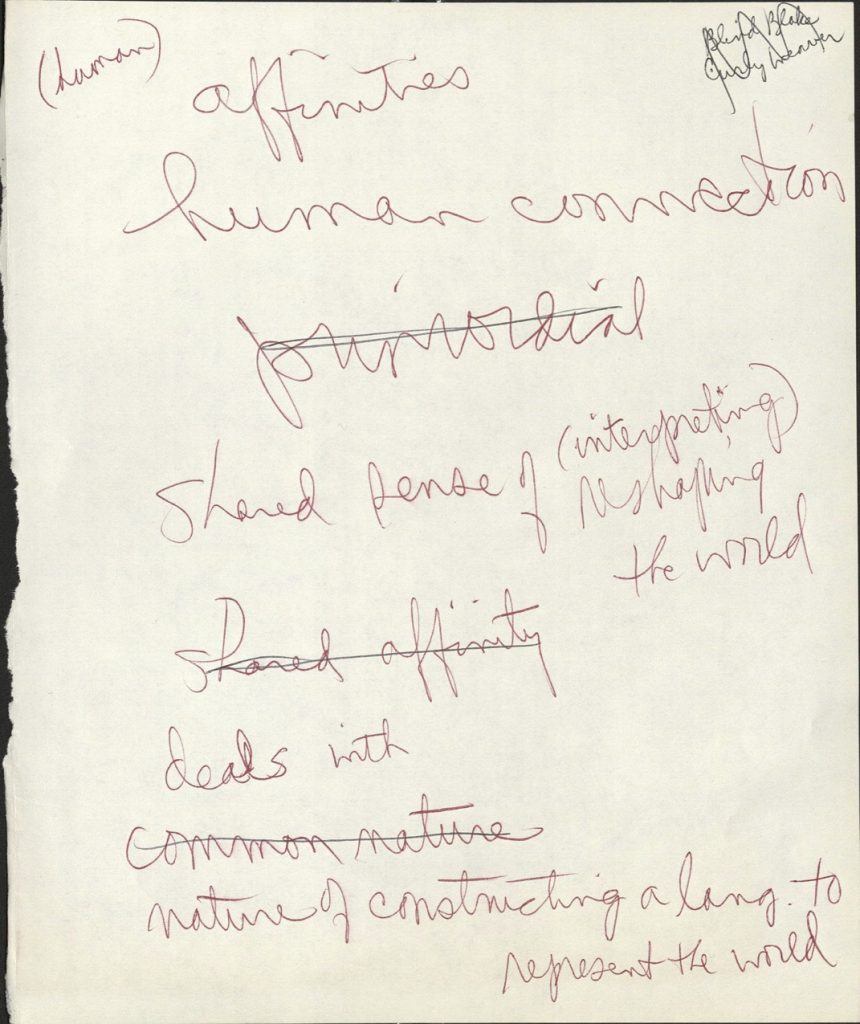 (human)
Blind Blake
Curly Weaver
affinities
human connection
primordial
shared sense of (interpreting)
reshaping
the world
shared affinity
deals with
common nature
nature of constructing a lang. to
represent the world